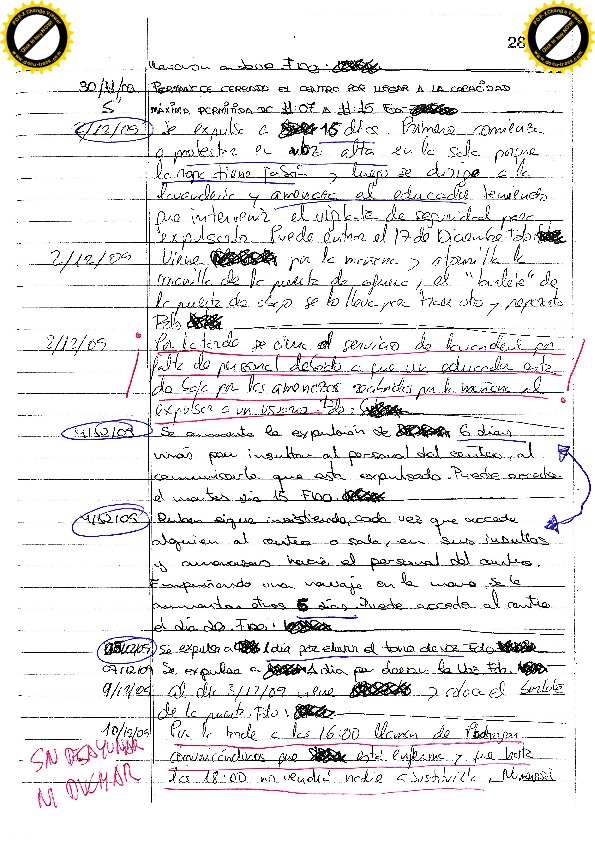 28
Fdo:
30/11/09 PERMANECE CERRADO EL CENTRO POR LLEGAR A LA CAPACIDAD
S MÁXIMA PERMITIDA DE 11:07 A 11:15 Fdo:
2/12/09 Se expulsa a 15 días. Primero comienza
a protestar en voz alta en la sala porque
la ropa tiene jabón y luego se dirige a la
lavandería y amenaza al educador teniendo
que intervenir el vigilante de seguridad para
expulsarlo. Puede entrar el 17 de Diciembre Fdo:
2/12/09 Viene por la mañana y atornilla la
manilla de la puerta de afuera, el de
la puerta de abajo se lo lleva para traer otro y reponerlo
Fdo
2/12/09 Por la tarde se cierra el servicio de lavandería por
falta de personal debido a que un educador esta
de baja por las amenazas recibidas por la mañana al
expulsar a un usuario. Fdo:
Se aumenta la expulsión de 6 días
más por insultar al personal del centro, al
comunicarle que esta expulsado. Puede acceder
el martes día 15 Fdo.
sigue insistiendo, cada vez que accede
alguien al centro o sala, en sus insultos
y amenazas hacia el personal del centro.
Empuñando una navaja en la mano, se le
aumentan otros 5 días. Puede acceder al centro
el día 20 Fdo:
Se expulsa a 1 día por elevar el tono de voz Fdo
09/12/09 Se expulsa a 1 día por elevar la voz Fdo.
9/12/09 al día 3/12/09 viene y coloca el
de la puerta. Fdo:
10/12/09 Por la tarde a las 16:00 llaman de
comunicándonos que está enferma y que hasta
las 18:00 no vendrá nadie a sustituirla,
SIN DESAYUNAR
NI DUCHAR